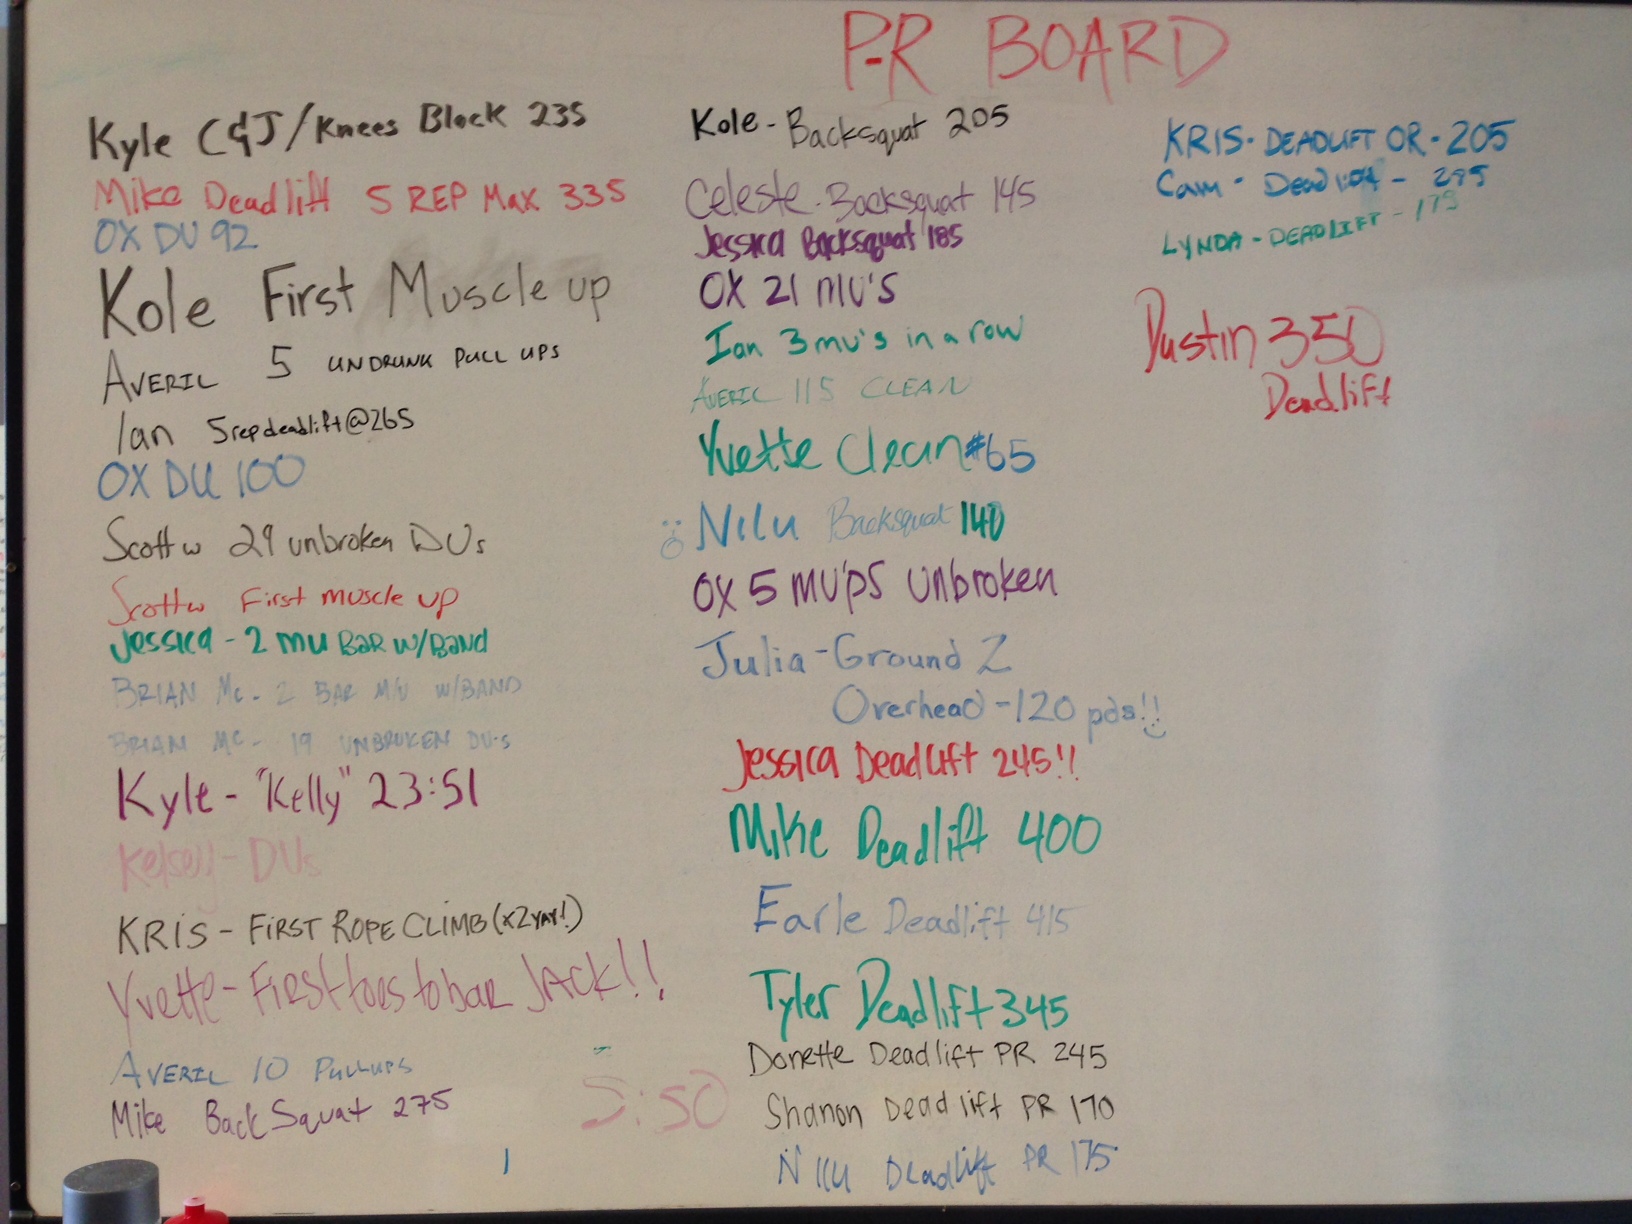 P-R BOARD
Kyle C&J/Knees Block 235
Mike Deadlift 5 REP MAX 335
OX DU 92
Kole First Muscle up
AVERIL 5 UNDRUNK PULL UPS
Ian 5rep deadlift@265
OX DU 100
Scott w 29 unbroken DUs
Scott w First muscle up
Jessica - 2 mu BAR w/BAND
BRIAN Mc. - 2 BAR M/U W/BAND
BRIAN MC - 19 UNBROKEN DU's
Kyle - "Kelly" 23:51
Kelsey - DUs
KRIS - FIRST ROPE CLIMB (x2 YAY!)
Yvette - First toes to bar JACK!!
AVERIL 10 PULLUPS
Mike Back Squat 275
5:50
Kole - Backsquat 205
Celeste - Backsquat 145
Jessica Backsquat 185
OX 21 MU'S
Ian 3 mu's in a row
AVERIL 115 CLEAN
Yvette Clean #65
Nilu Backsquat 140
OX 5 MU'PS Unbroken
Julia - Ground 2
Overhead - 120 pds!!
Jessica Deadlift 245!!
Mike Deadlift 400
Earle Deadlift 415
Tyler Deadlift 345
Donette Deadlift PR 245
Shanon Deadlift PR 170
Nilu Deadlift PR 175
KRIS - DEADLIFT OR - 205
Cam - Deadlift - 295
LYNDA - DEADLIFT - 175
Dustin 350
Deadlift